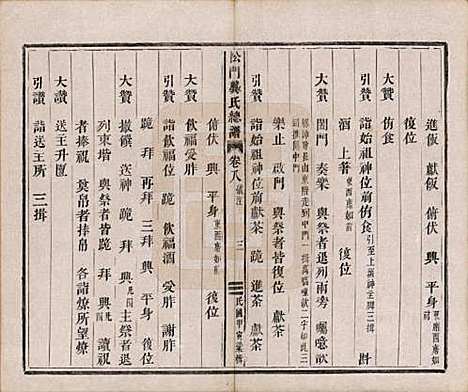 進飯 獻飯 俯伏 興 平身 東廂西廂如前
復位
大贊 侑食
引贊 詣始祖神位前侑食 引至上嶺神主牌三揖 斟
酒 上 東西廂如前 復位
大贊 闔門 奏樂 與祭者退列兩旁 囑噫歆
樂止 啟門 與祭者皆復位 獻茶
引贊 詣始祖神位前獻茶 跪 進茶 獻茶
松門龔氏總譜 卷八 三 民國甲寅
俯伏 興 平身 東西廂如前 復位
大贊 飲福受胙
引贊 詣飲福位 跪 飲福酒 受胙 謝胙
跪 拜 再拜 三拜 興 平身 復位
大贊 撤饌 送神 跪 拜 興 凡四 主祭者退
列東堦 與祭者皆跪 拜 興 凡四 讀祝
者捧祝 奠帛者捧帛 各詣燎所望燎
大讚 送主升匱
引讚 詣送主所 三揖